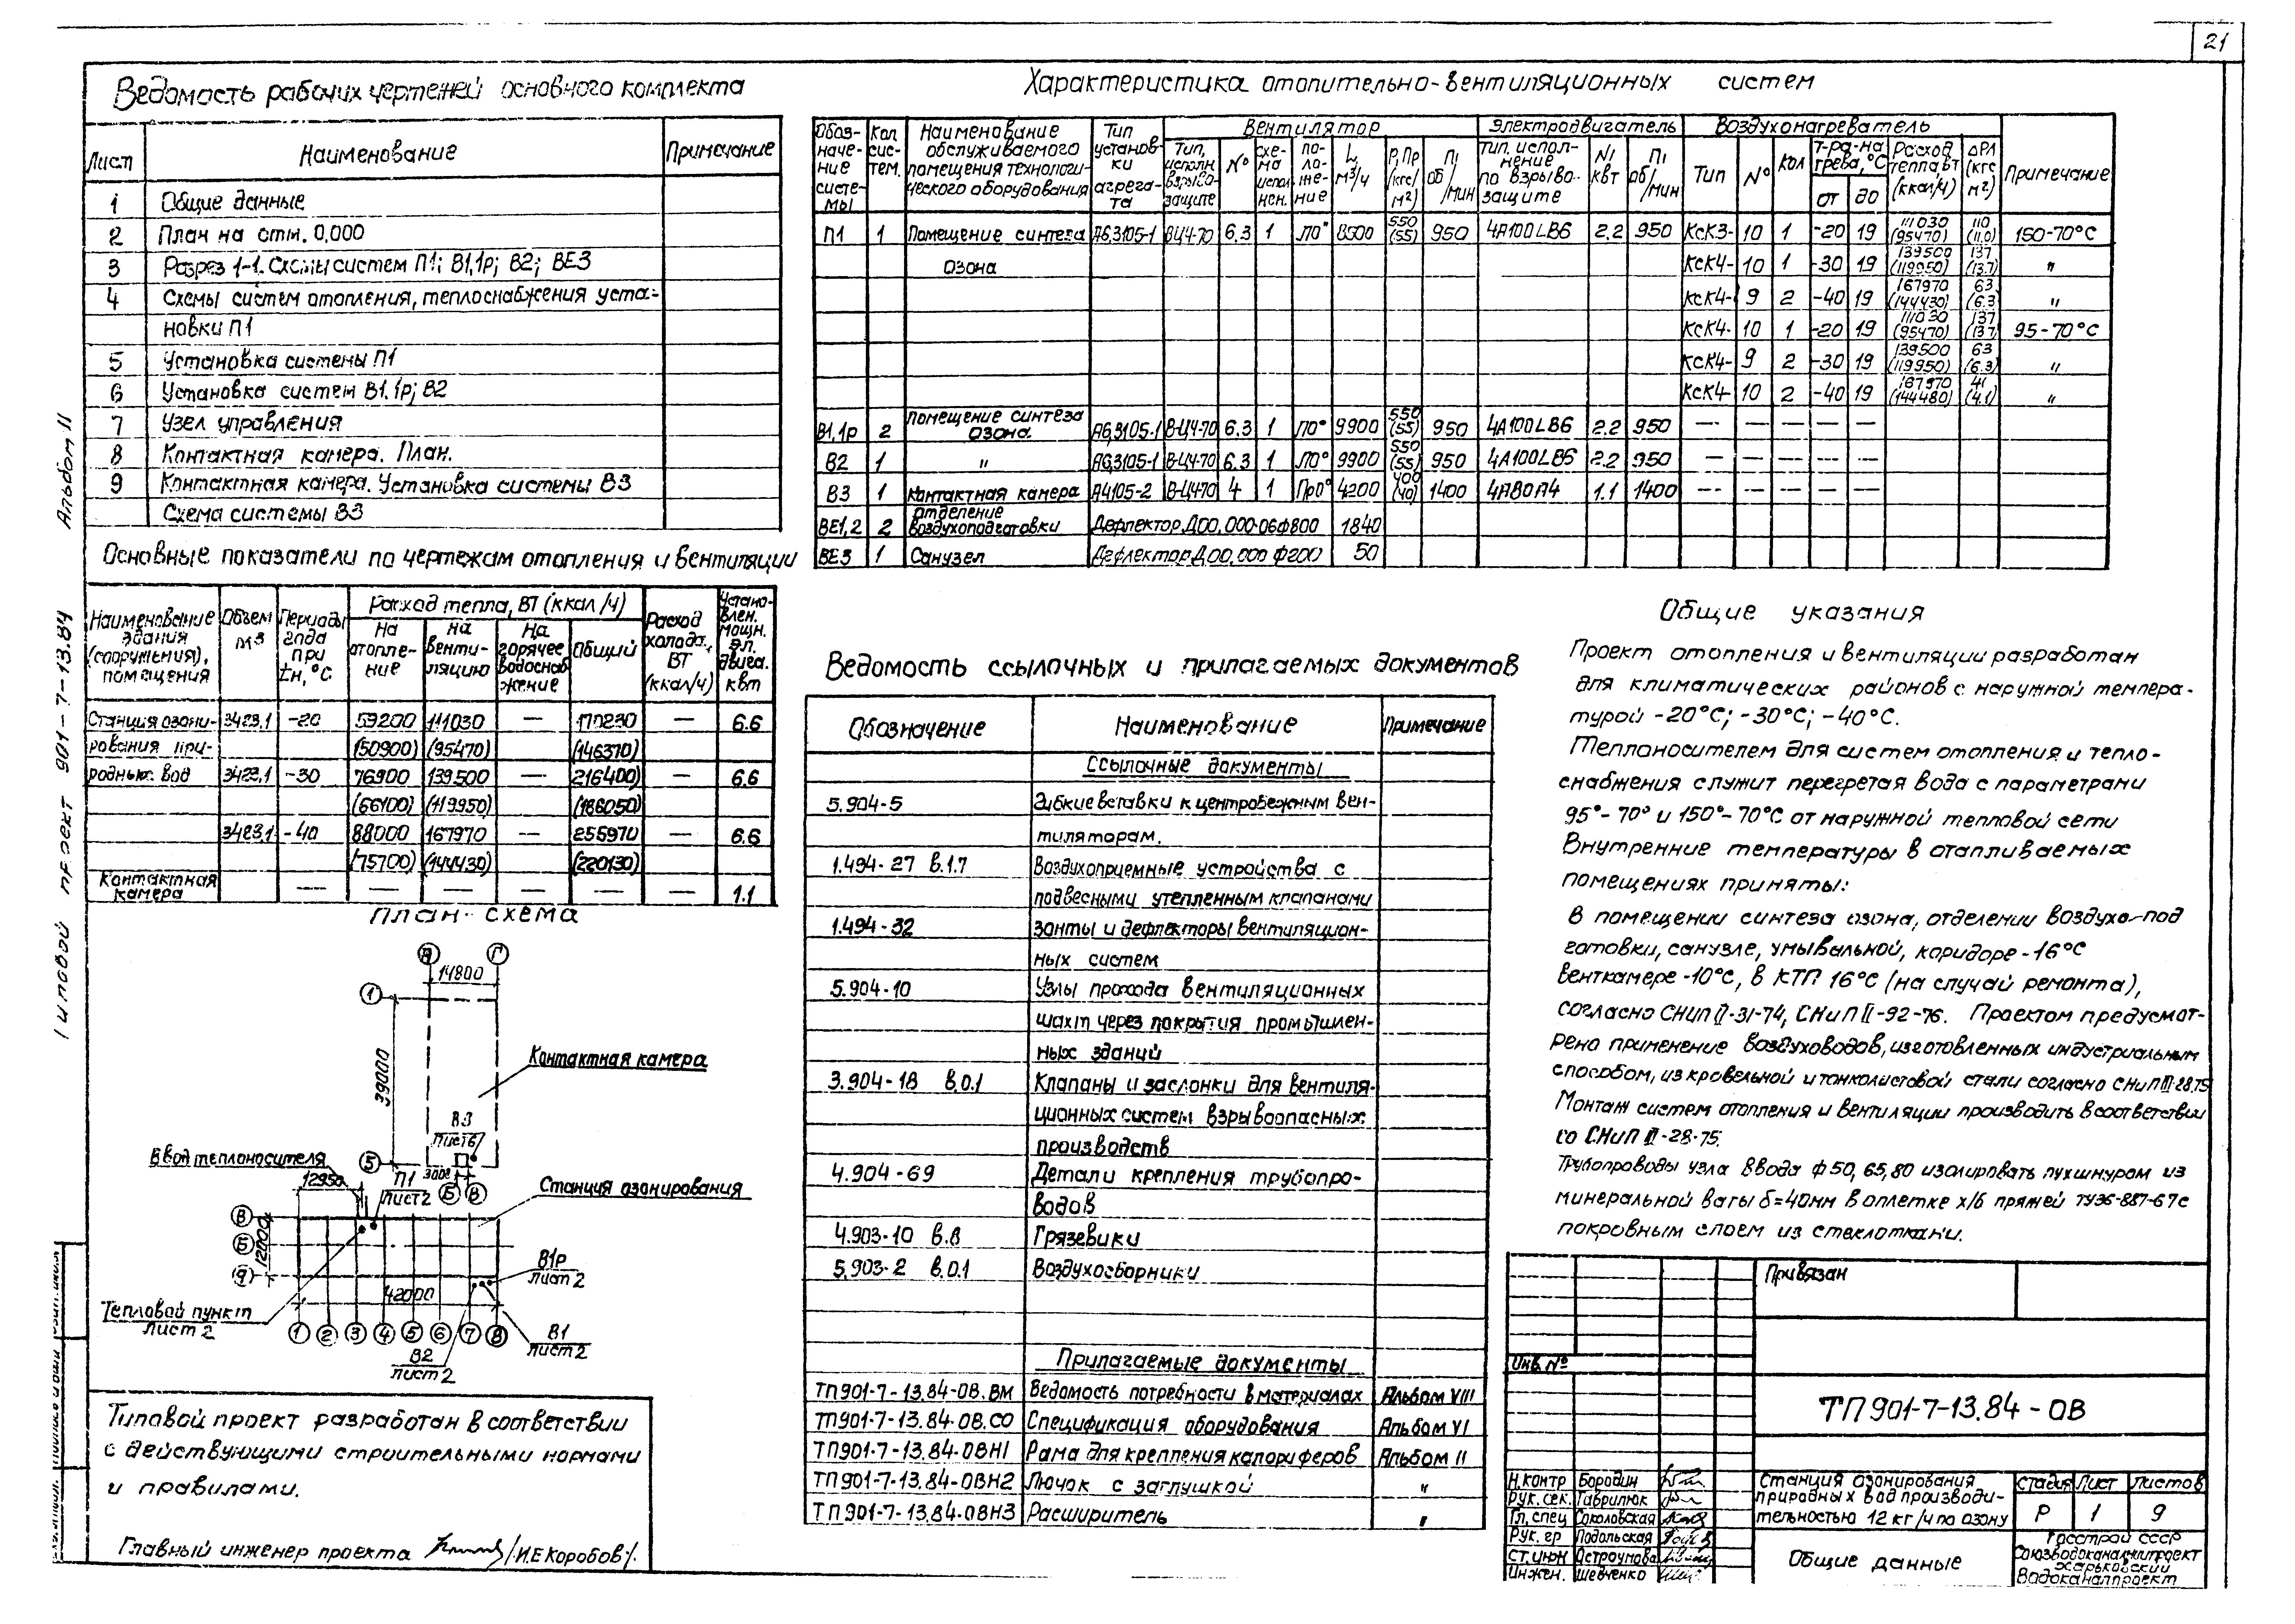 21
Альбом II
Типовой проект 901-7-13.84
Ведомость рабочих чертежей основного комплекта
Лист Наименование Примечание
1 Общие данные
2 План на отм. 0,000
3 Разрез 1-1. Схемы систем П1; В1,1р; В2; ВЕ3
4 Схемы систем отопления, теплоснабжения уста-
новки П1
5 Установка системы П1
6 Установка систем В1.1р; В2
7 Узел управления
8 Контактная камера. План.
9 Контактная камера. Установка системы В3
Схема системы В3
Основные показатели по чертежам отопления и вентиляции
Наименование здания (сооружения), помещения Объем м3 Периоды года при tн, °С Расход тепла, ВТ (ккал/ч) На отопле-ние На венти-ляцию На горячее водоснаб жение Общий Расход холода, ВТ (ккал/ч) Устано-влен. мощн. эл. двига. квт
Станция озони- 3423,1 -20 59200 111030 — 170230 — 6.6
рования при- (50900) (95470) (146370)
родных вод 3423,1 -30 76900 139500 — 216400) — 6.6
(66100) (119950) (186050)
3423,1 -40 88000 167970 — 255970 — 6.6
(75700) (144430) (220130)
Контактная камера — — — — — — 1.1
План-схема
А Г
14800
1
39000
Контактная камера
В3
Лист 6
5
3000
Б В
Ввод теплоносителя
12950
П1
Лист 2
Станция озонирования
В
Б
12000
В1р
Лист 2
42000
Тепловой пункт
Лист 2
1 2 3 4 5 6 7 8
В1
Лист 2
В2
Лист 2
Типовой проект разработан в соответствии
с действующими строительными нормами
и правилами.
Главный инженер проекта /И.Е Коробов/.
Характеристика отопительно-вентиляционных систем
Обоз-наче-ние систе-мы Кол сис-тем. Наименование обслуживаемого помещения технологи-ческого оборудования Тип установ-ки агрега-та Вентилятор Тип, исполн взрыво-защите № схе-ма испол нен. по-ло-же-ние L, м³/ч Р, Пр (кгс/м²) П1 об/мин Электродвигатель Тип, испол-нение по взрыво-защите N1 квт П1 об/мин Воздухонагреватель Тип № Кол Т-ра-на-грева, °С от до Расход тепла вт (ккал/ч) ΔРл (кгс м²) Примечание
П1 1 Помещение синтеза А6,3105-1 ВЦ4-70 6.3 1 ЛО° 8500 550 (55) 950 4А100LВ6 2.2 950 КсК3- 10 1 -20 19 111030 (95470) 110 (11.0) 150-70°С
озона КсК4- 10 1 -30 19 139500 (119950) 137 (13.7) "
КсК4- 9 2 -40 19 167970 (144430) 63 (6.3 "
КсК4- 10 1 -20 19 111030 (95470) 137 (13.7 95-70°С
КсК4- 9 2 -30 19 139500 (119950) 63 (6.3) "
КсК4- 10 2 -40 19 167970 (144480) 41 (4.1) "
В1,1р 2 Помещение синтеза озона А6,3105-1 В-Ц4-70 6.3 1 ЛО° 9900 550 (55) 950 4А100LВ6 2.2 950 — — — — —
В2 1 " А6,3105-1 В-Ц4-70 6.3 1 ЛО° 9900 550 (55) 950 4А100LВ6 2.2 950 — — — — —
В3 1 Контактная камера А4105-2 В-Ц4-70 4 1 Пр0° 4200 400 (40) 1400 4А80А4 1.1 1400 — — — — —
ВЕ1,2 2 отделение воздухоподготовки Дефлектор Д00,000-06ф800 1840
ВЕ3 1 Санузел Дефлектор Д00,000 ф200 50
Ведомость ссылочных и прилагаемых документов
Обозначение Наименование Примечание
Ссылочные документы
5.904-5 Гибкие вставки к центробежным вен-
тиляторам.
1.494-27 в.1.7 Воздухоприемные устройства с
подвесными утепленным клапанами
1.494-32 Зонты и дефлекторы вентиляцион-
ных систем
5.904-10 Узлы прохода вентиляционных
шахт через покрытия промышлен-
ных зданий
3.904-18 в.0.1 Клапаны и заслонки для вентиля-
ционных систем взрывоопасных
производств
4.904-69 Детали крепления трубопро-
водов
4.903-10 в.8 Грязевики
5.903-2 в.0.1 Воздухосборники
Прилагаемые документы
ТП901-7-13.84-ОВ.ВМ Ведомость потребности в материалах Альбом VIII
ТП901-7-13.84-ОВ.СО Спецификация оборудования Альбом VI
ТП901-7-13.84-ОВН1 Рама для крепления калориферов Альбом II
ТП901-7-13.84-ОВН2 Лючок с заглушкой "
ТП901-7-13.84-ОВН3 Расширитель "
Общие указания
Проект отопления и вентиляции разработан
для климатических районов с наружной темпера-
турой -20°С; -30°С; -40°С.
Теплоносителем для систем отопления и тепло-
снабжения служит перегретая вода с параметрами
95°-70° и 150°-70°С от наружной тепловой сети
Внутренние температуры в отапливаемых
помещениях приняты:
в помещении синтеза озона, отделении воздухо-под
готовки, санузле, умывальной, коридоре -16°С
венткамере -10°С, в КТП 16°С (на случай ремонта),
согласно СНиП II-31-74, СНиП II-92-76. Проектом предусмот-
рено применение воздуховодов, изготовленных индустриальным
способом, из кровельной и тонколистовой стали согласно СНиП III-28.75
Монтаж систем отопления и вентиляции производить в соответствии
со СНиП III-28-75.
Трубопроводы узла ввода ф50, 65, 80 изолировать пухшнуром из
минеральной ваты б=40мм в оплетке х/б пряжей ТУ36-887-67 с
покровным слоем из стеклоткани.
Привязан
Инв. №
ТП 901-7-13.84-ОВ
Н.контр Бородин
Рук. сек. Гаврилюк
Гл. спец Соколовская
Рук. гр Подольская
Ст. инж Остроумова
Инжен. Шевченко
Станция озонирования
природных вод производи-
тельностью 12 кг/ч по озону
Стадия Лист Листов
Р 1 9
Общие данные
Госстрой СССР
Союзводоканалниипроект
Харьковский
Водоканалпроект